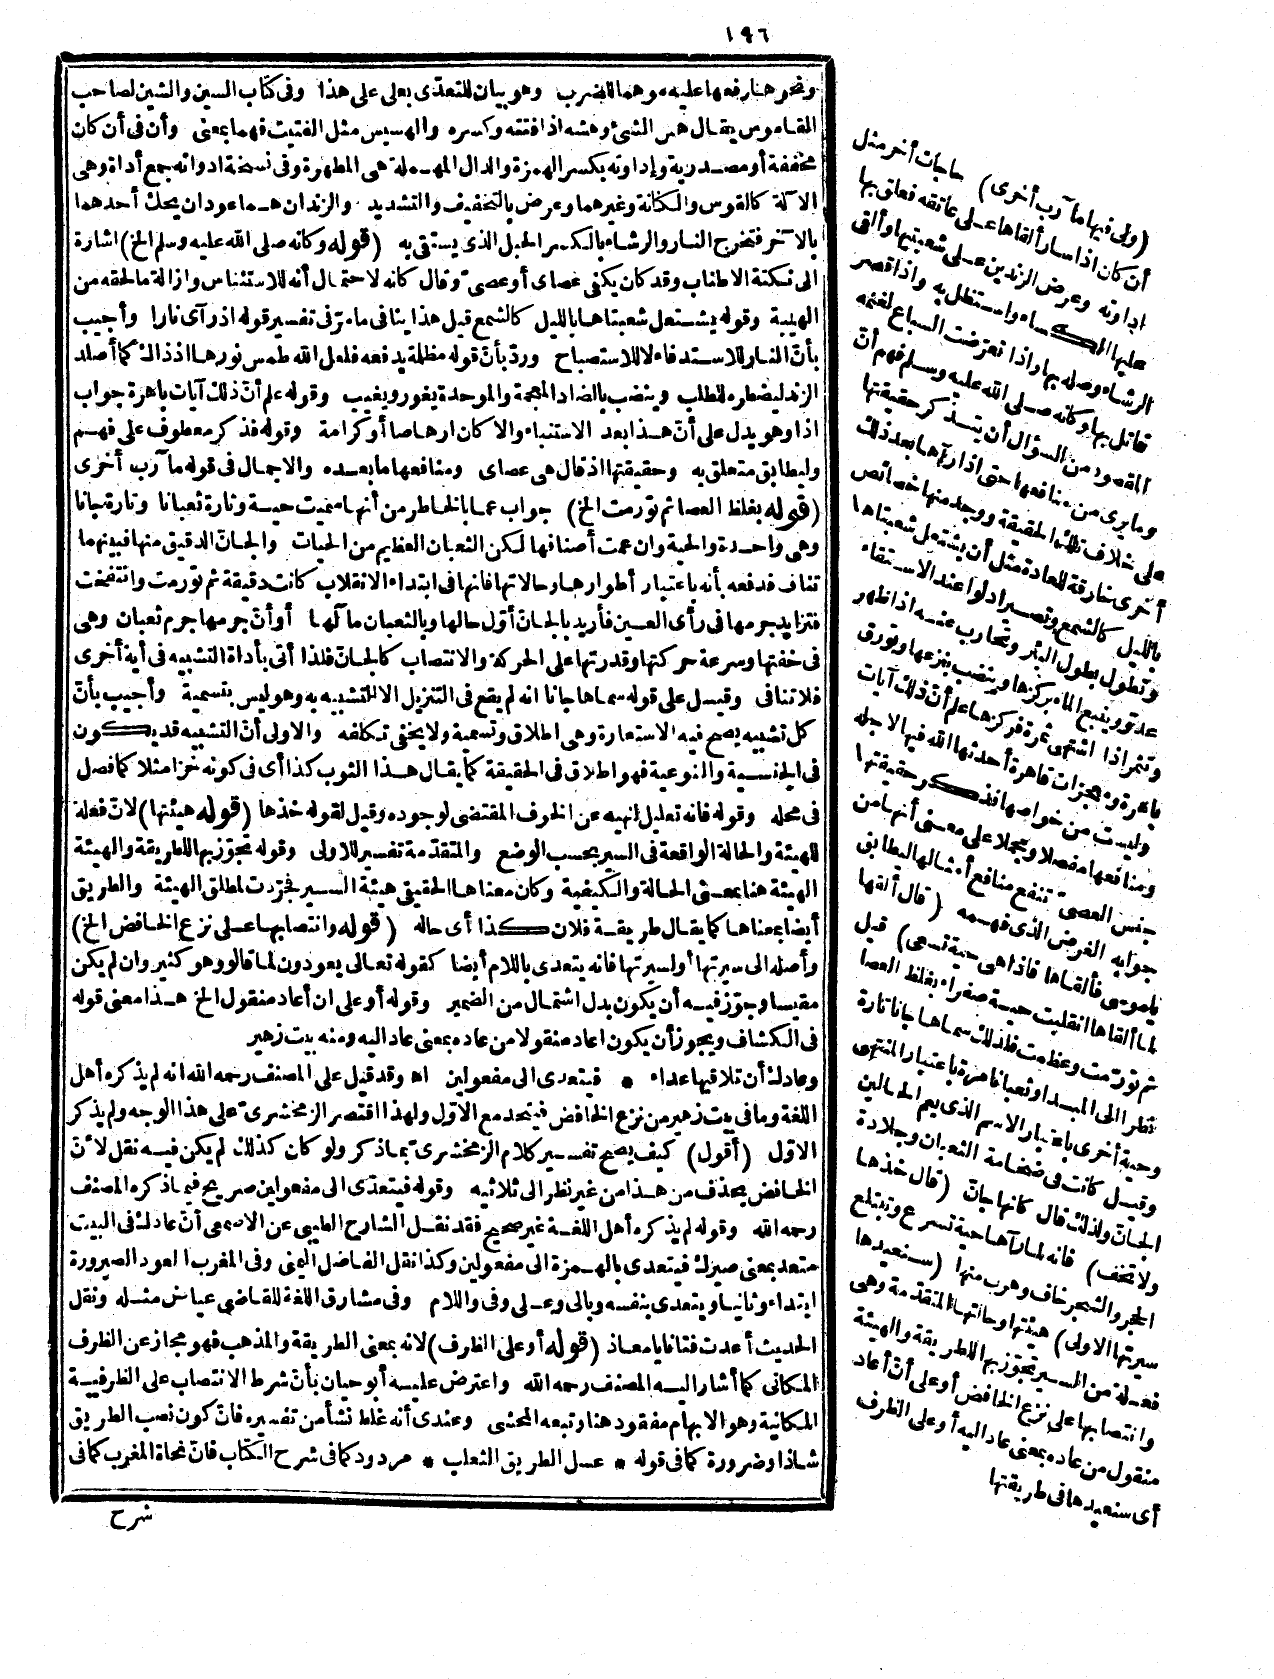 ١٩٦
ونحو هنا رفعها عليه وهما للضرب وهو بيان للتعدّى بعلى على هذا وفى كتاب السين والشين لصاحب
القاموس يقال هس الشئ وهشه اذا فتته وكسره والهسيس مثل الفتيت فهما بمعنى وأن فى أن كان
مخففة أو مصدرية وإداوته بكسر الهمزة والدال المهملة هى المطهرة وفى نسخة ادواته جمع أداة وهى
الآلة كالقوس والكنانة وغيرهما وعرض بالتخفيف والتشديد والزندان هما عودان يحك أحدهما
بالآخر فتخرج النار والرشاء بالكسر الحبل الذى يستقى به (قوله وكأنه صلى الله عليه وسلم الخ) اشارة
الى نكتة الاطناب وقد كان يكفى عصاى أو عصىّ وقال كانه لاحتمال أنه للاستئناس وازالة ما لحقه من
الهيبة وقوله يشتعل شعبتاها بالليل كالشمع قيل هذا ينافى ما مرّ فى تفسير قوله اذ رآى نارا وأجيب
بأنّ النار للاستدفاء لا للاستصباح وردّ بأنّ قوله مظلمة يدفعه فلعل الله طمس نورها اذ ذاك كما أصلد
الزند ليضطره للطلب وينضب بالضاد المعجمة والموحدة يغور ويغيب وقوله علم أنّ ذلك آيات باهرة جواب
اذا وهو يدل على أنّ هذا بعد الاستنباء والا كان ارهاصا أو كرامة وقوله فذكر معطوف على فهم
وليطابق متعلق به وحقيقتها اذ قال هى عصاى ومنافعها ما بعده والاجمال فى قوله مآرب أخرى
(قوله بغلظ العصا ثم تورّمت الخ) جواب عما بالخاطر من أنها سميت حية وتارة ثعبانا وتارة جانا
وهى واحدة والحية وان عمت أصنافها لكن الثعبان العظيم من الحيات والجانّ الدقيق منها فبينهما
تناف فدفعه بأنه باعتبار أطوارها وحالاتها فانها فى ابتداء الانقلاب كانت دقيقة ثم تورمت وانتفخت
فتزايد جرمها فى رأى العين فأريد بالجانّ أوّل حالها وبالثعبان مآلها أو أنّ جرمها جرم ثعبان وهى
فى خفتها وسرعة حركتها وقدرتها على الحركة والانتصاب كالجانّ فلذا أتى بأداة التشبيه فى آية أخرى
فلا تنافى وقيل على قوله سماها جانا انه لم يقع فى التنزيل الا التشبيه به وهو ليس بتسمية وأجيب بأنّ
كل تشبيه يصح فيه الاستعارة وهى اطلاق وتسمية ولا يخفى تكلفه والاولى أنّ التشبيه قد يكون
فى الجنسية والنوعية فهو اطلاق فى الحقيقة كما يقال هذا الثوب كذا أى فى كونه خزا مثلا كما فصل
فى محله وقوله فانه تعليل لنهيه عن الخوف المقتضى لوجوده وقيل لقوله خذها (قوله هيئتها) لانّ فعلة
للهيئة والحالة الواقعة فى السير بحسب الوضع والمتقدّمة تفسير للاولى وقوله تجوّز بها للطريقة والهيئة
الهيئة هنا بمعنى الحالة والكيفية وكان معناها الحقيقى هيئة السير فجرّدت لمطلق الهيئة والطريق
أيضا بمعناها كما يقال طريقة فلان كذا أى حاله (قوله وانتصابها على نزع الخافض الخ)
وأصله الى سيرتها أو لسيرتها فانه يتعدى باللام أيضا كقوله تعالى يعودون لما قالوا وهو كثير وان لم يكن
مقيسا وجوّز فيه أن يكون بدل اشتمال من الضمير وقوله أو على ان أعاد منقول الخ هذا معنى قوله
فى الكشاف ويجوز أن يكون اعاد منقولا من عاده بمعنى عاد اليه ومنه بيت زهير
وعادك أن تلاقيها عداء * فيتعدى الى مفعولين اه وقد قيل على المصنف رحمه الله انه لم يذكره أهل
اللغة وما فى بيت زهير من نزع الخافض فيتحد مع الاوّل ولهذا اقتصر الزمخشرىّ على هذا الوجه ولم يذكر
الاوّل (أقول) كيف يصح تفسير كلام الزمخشرىّ بما ذكر ولو كان كذلك لم يكن فيه نقل لانّ
الخافض يحذف من هذا من غير نظر الى ثلاثيه وقوله فيتعدّى الى مفعولين صريح فيما ذكره المصنف
رحمه الله وقوله لم يذكره أهل اللغة غير صحيح فقد نقل الشارح الطيبى عن الاصمعى أنّ عادك فى البيت
متعد بمعنى صيرك فيتعدى بالهمزة الى مفعولين وكذا نقل الفاضل اليمنى وفى المغرب العود الصيرورة
ابتداء وثانيا ويتعدى بنفسه وبالى وعلى وفى واللام وفى مشارق اللغة للقاضى عياض مثله ونقل
الحديث أعدت فتانا يا معاذ (قوله أو على الظرف) لانه بمعنى الطريقة والمذهب فهو مجاز عن الظرف
المكانى كما أشار اليه المصنف رحمه الله واعترض عليه أبو حيان بأنّ شرط الانتصاب على الظرفية
المكانية وهو الابهام مفقود هنا وتبعه المحشى وعندى أنه غلط نشأ من تفسيره فانّ كون نصب الطريق
شاذا وضرورة كما فى قوله * عسل الطريق الثعلب * مردود كما فى شرح الكتاب فانّ نحاة المغرب كما فى
شرح
(ولى فيها مآرب أخرى) حاجات أخر مثل
أن كان اذا سار ألقاها على عاتقه فعلق بها
اداوته وعرض الزندين على شعبتيها وألقى
عليها الكساء واستظل به واذا قصر
الرشاء وصله بها واذا تعرّضت السباع لغنمه
قاتل بها وكأنه صلى الله عليه وسلم فهم أنّ
المقصود من السؤال أن يتذكر حقيقتها
وما يرى من منافعها حتى اذا رآها بعد ذلك
على خلاف تلك الحقيقة ووجد منها خصائص
أخرى خارقة للعادة مثل أن يشتعل شعبتاها
بالليل كالشمع وتصير ا دلوا عند الاستقاء
وتطول بطول البئر وتحارب عنه اذا ظهر
عدوّ وينبع الماء بركزها وينضب بنزعها وتورق
وتثمر اذا اشتهى ثمرة فركزها علم أنّ ذلك آيات
باهرة ومعجزات قاهرة أحدثها الله فيها لاجله
وليست من خواصها فذكر حقيقتها
ومنافعها مفصلا ومجملا على معنى أنها من
جنس العصىّ تنفع منافع أمثالها ليطابق
جوابه الغرض الذى فهمه (قال ألقها
يا موسى فألقاها فاذا هى حية تسعى) قيل
لما ألقاها انقلبت حية صفراء بغلظ العصا
ثم تورّمت وعظمت فلذلك سماها جانا تارة
نظرا الى المبدا وثعبانا مرة باعتبار المنتهى
وحية أخرى باعتبار الاسم الذى يعم الحالين
وقيل كانت فى ضخامة الثعبان وجلادة
الجانّ ولذلك قال كانها جانّ (قال خذها
ولا تخف) فانه لما رآها حية تسرع وتبتلع
الحجر والشجر خاف وهرب منها (سنعيدها
سيرتها الاولى) هيئتها وحالتها المتقدّمة وهى
فعلة من السير تجوّز بها للطريقة والهيئة
وانتصابها على نزع الخافض أو على أنّ أعاد
منقول من عاده بمعنى عاد اليه أو على الظرف
أى سنعيدها فى طريقتها